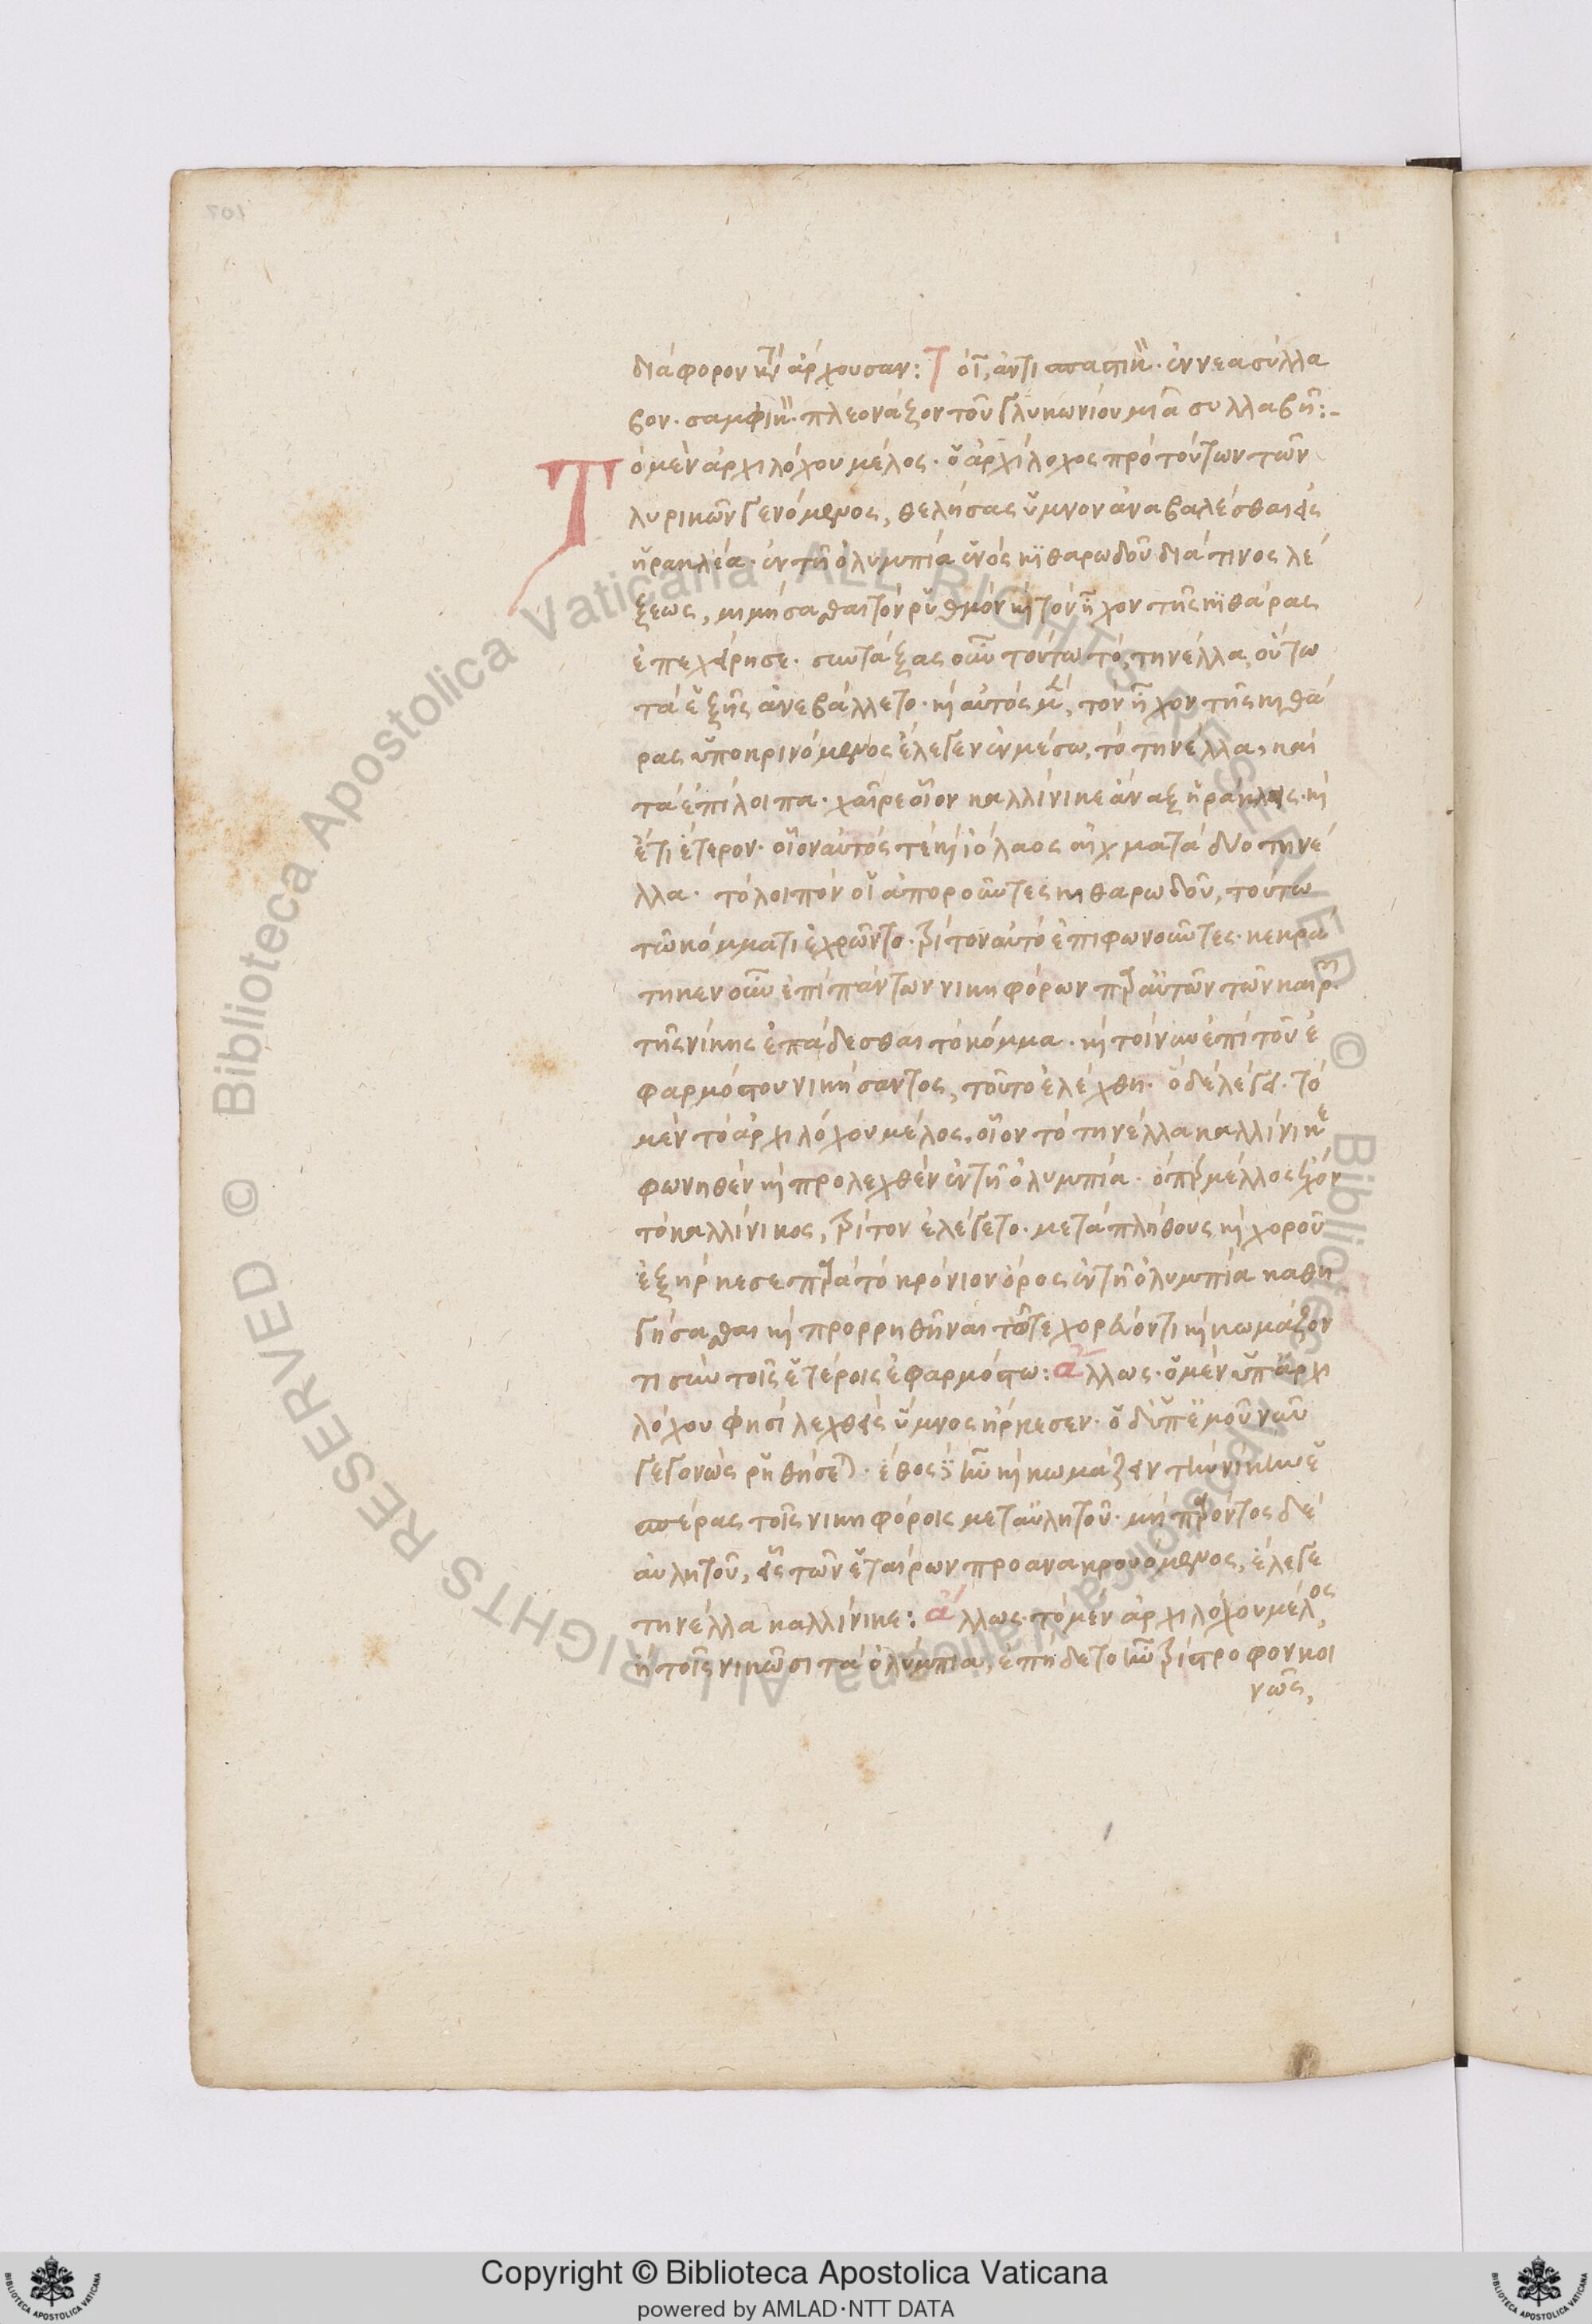 διάφορον κτ ἀρχουσαν: Τ ὁ ι, ἀντισπαστικ. ἐννεασύλλα
βον. σαμφικ. πλεονάζον τοῦ γλυκωνίου μιᾶ συλλαβῆ:-
Τ ὁ μὲν ἀρχιλόχου μέλος. ὁ ἀρχίλοχος πρὸ τούτων τῶν
λυρικῶν γενόμενος, θελήσας ὕμνον ἀναβαλέσθαι εἰς
ἡρακλέα. ἐν τῆ ὀλυμπία ἑνὸς κιθαρωδοῦ διά τινος λέ
ξεως, μιμήσασθαι τὸν ρυθμὸν καὶ τὸν ἦχον τῆς κιθάρας
ἐπεχείρησε. συντάξας οὖν τούτω τὸ, τηνέλλα, οὕτω
τὰ ἑξῆς ἀνεβάλλετο. καὶ αὐτὸς μὲν, τὸν ἦχον τῆς κιθά
ρας ὑποκρινόμενος ἔλεγεν ἐν μέσω, τὸ τηνέλλα, καὶ
τὰ ἐπίλοιπα. χαῖρε οἷον καλλίνικε ἄναξ ἡράκλεις. καὶ
ἔτι ἕτερον. οἷον αὐτός τε καὶ ἰόλαος αἰχματὰ δύο τηνέ
λλα. τὸ λοιπὸν οἱ ἀποροῦντες κιθαρωδοῦ, τούτω
τῶ κόμματι ἐχρῶντο. τρίτον αὐτὸ ἐπιφωνοῦντες. κεκρά
τηκεν οὖν ἐπὶ πάντων νικηφόρων παρ αὐτῶν τῶν καιρ
τῆς νίκης ἐπάδεσθαι τὸ κόμμα. καὶ τοίνυν ἐπὶ τοῦ ἐ
φαρμόστου νικήσαντος, τοῦτο ἐλέχθη. ὃ δὲ λέγει. τὸ
μὲν τὸ ἀρχιλόχου μέλος. οἷον τὸ τηνέλλα καλλίνικε
φωνηθὲν καὶ προλεχθὲν ἐν τῆ ὀλυμπία. ὅπερ μέλλος
τὸ καλλίνικος, τρίτον ἐλέγετο. μετὰ πλήθους καὶ χοροῦ
ἐξήρκεσε παρὰ τὸ κρόνιον ὄρος ἐν τῆ ὀλυμπία καθη
γήσασθαι καὶ προρρηθῆναι τῶ τε χορεύοντι καὶ κωμάζον
τι σὺν τοῖς ἑτέροις ἐφαρμόστω: ἄλλως. ὁ μὲν ὑπ ἀρχι
λόχου φησὶ λεχθεὶς ὕμνος ἤρκεσεν. ὁ δ ὑπ ἐμοῦ νῦν
γεγονὼς ρηθήσεται. ἔθος ἦν καὶ κωμάζειν τὴν νίκην ἑ
σπέρας τοῖς νικηφόροις μετ αὐλητοῦ. μὴ παρόντος δὲ
αὐλητοῦ, εἷς τῶν ἑταίρων προανακρουόμενος, ἔλεγε
τηνέλλα καλλίνικε: ἄλλως. τὸ μὲν ἀρχιλόχου μέλος,
ὃ τοῖς νικῶσι τὰ ὀλύμπια, ἐπήδετο ἦν τρίστροφον κοι
νῶς,
107
Copyright © Biblioteca Apostolica Vaticana
powered by AMLAD·NTT DATA
© Biblioteca Apostolica Vaticana ALL RIGHTS RESERVED
© Biblioteca Apostolica Vaticana ALL RIGHTS RESERVED